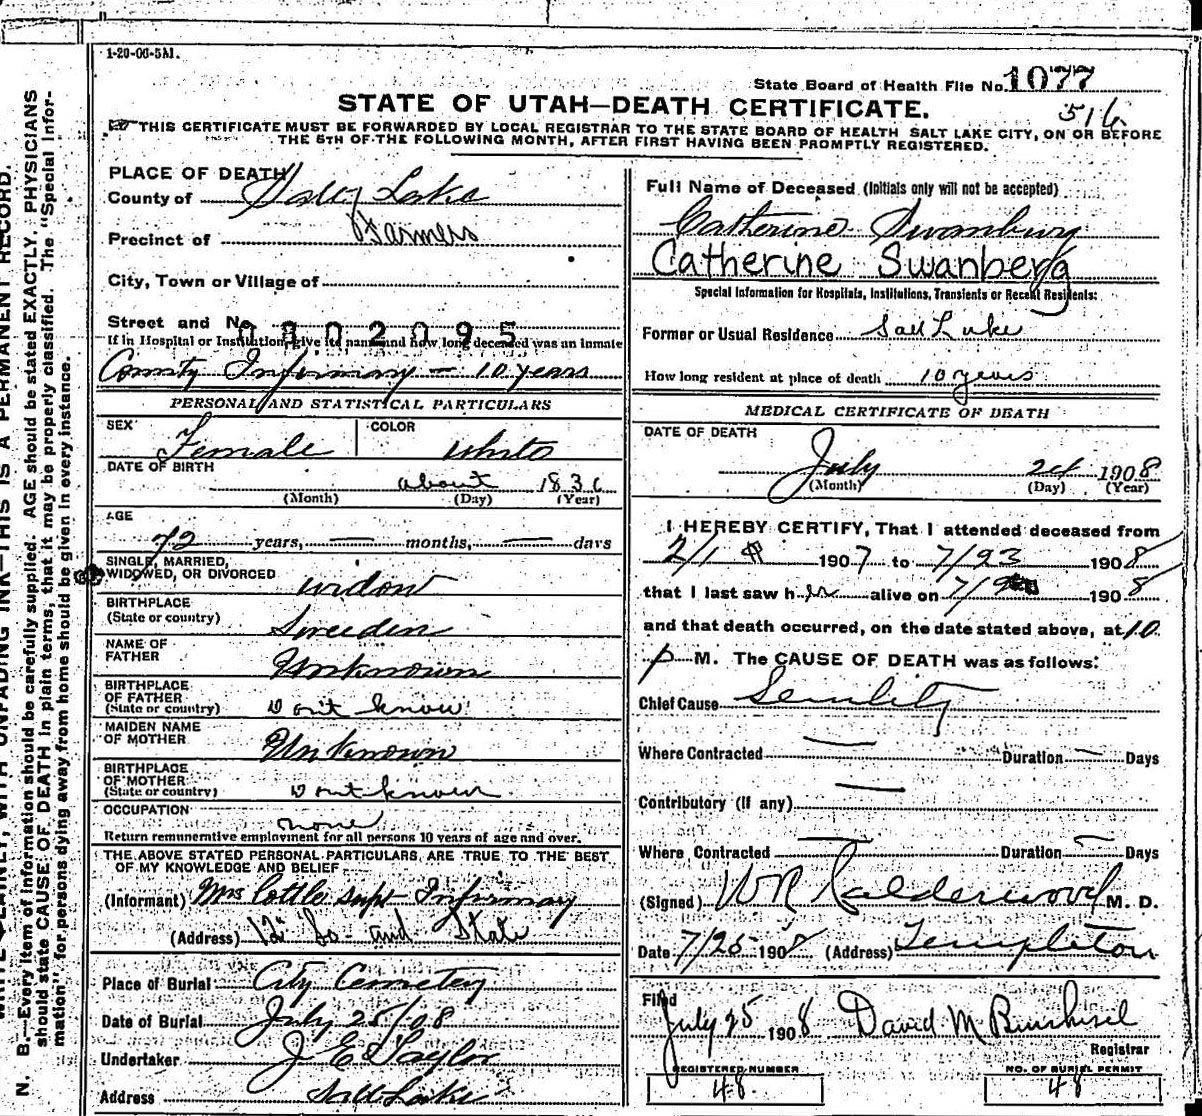 1-20-06-5M.
State Board of Health File No. 1077
516
STATE OF UTAH—DEATH CERTIFICATE.
THIS CERTIFICATE MUST BE FORWARDED BY LOCAL REGISTRAR TO THE STATE BOARD OF HEALTH SALT LAKE CITY, ON OR BEFORE
THE 5TH OF THE FOLLOWING MONTH, AFTER FIRST HAVING BEEN PROMPTLY REGISTERED.
N. B.—Every item of information should be carefully supplied. AGE should be stated EXACTLY. PHYSICIANS
should state CAUSE OF DEATH in plain terms, that it may be properly classified. The "Special Infor-
mation" for persons dying away from home should be given in every instance.
WRITE PLAINLY, WITH UNFADING INK—THIS IS A PERMANENT RECORD.
PLACE OF DEATH
County of Salt Lake
Precinct of Farmers
City, Town or Village of
Street and No.
0802095
If in Hospital or Institution, give its name and how long deceased was an inmate
County Infirmary — 10 years
PERSONAL AND STATISTICAL PARTICULARS
SEX Female COLOR White
DATE OF BIRTH about 1836
(Month) (Day) (Year)
AGE
72 years, — months, — days
SINGLE, MARRIED,
WIDOWED, OR DIVORCED widow
BIRTHPLACE
(State or country) Sweeden
NAME OF
FATHER Unknown
BIRTHPLACE
OF FATHER
(State or country) Dont know
MAIDEN NAME
OF MOTHER Unknown
BIRTHPLACE
OF MOTHER
(State or country) Dont know
OCCUPATION none
Return remunerative employment for all persons 10 years of age and over.
THE ABOVE STATED PERSONAL PARTICULARS ARE TRUE TO THE BEST
OF MY KNOWLEDGE AND BELIEF
(Informant) Mrs Cottle Supt Infirmary
(Address) 12 So and State
Place of Burial City Cemetery
Date of Burial July 25/08
Undertaker J E Taylor
Address Salt Lake
Full Name of Deceased (Initials only will not be accepted)
Catherine Swanburg
Catherine Swanberg
Special Information for Hospitals, Institutions, Transients or Recent Residents:
Former or Usual Residence Salt Lake
How long resident at place of death 10 years
MEDICAL CERTIFICATE OF DEATH
DATE OF DEATH
July 24 1908
(Month) (Day) (Year)
I HEREBY CERTIFY, That I attended deceased from
2/1 1907 to 7/23 1908
that I last saw her alive on 7/2 1908
and that death occurred, on the date stated above, at 10
p M. The CAUSE OF DEATH was as follows:
Chief Cause Senility
Where Contracted — Duration — Days
Contributory (if any) —
Where Contracted — Duration — Days
(Signed) WR Calderwood M. D.
Date 7/25 1908 (Address) Templeton
Filed
July 25 1908 David M
Registrar
REGISTERED NUMBER
48
NO. OF BURIAL PERMIT
48